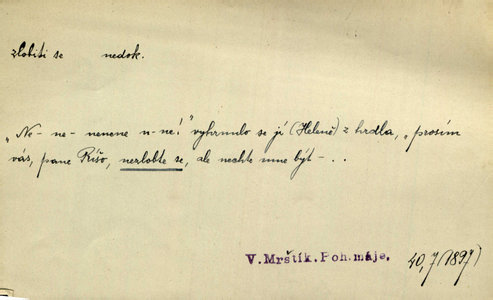 zlobiti se nedok.
„Ne- ne- nenene n-ne!" vyhrnulo se jí (Heleně) z hrdla, „prosím
vás, pane Ríšo, nezlobte se, ale nechte mne být - . .
V. Mrštík. Poh. máje. 40,7 (1897)